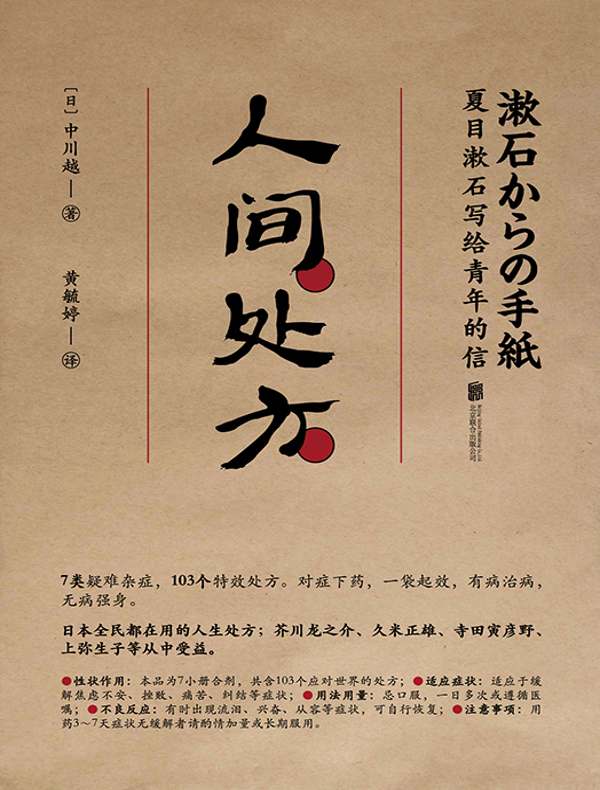 漱石からの手紙
夏目漱石写给青年的信
北京联合出版公司
人间处方
［日］中川越—著
黄毓婷—译
7类疑难杂症，103个特效处方。对症下药，一袋起效，有病治病，
无病强身。
日本全民都在用的人生处方；芥川龙之介、久米正雄、寺田寅彦野、
上弥生子等从中受益。
●性状作用：本品为7小册合剂，共含103个应对世界的处方；●适应症状：适应于缓
解焦虑不安、挫败、痛苦、纠结等症状；●用法用量：忌口服，一日多次或遵循医
嘱；●不良反应：有时出现流泪、兴奋、从容等症状，可自行恢复；●注意事项：用
药3～7天症状无缓解者请酌情加量或长期服用。